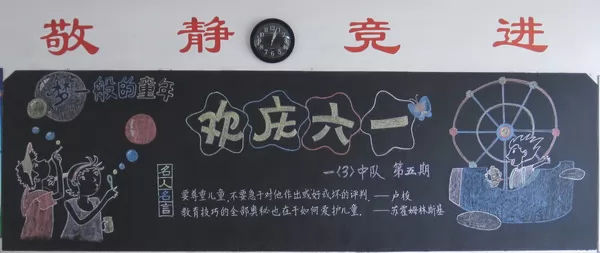 敬静竞进
梦一般的童年
欢庆六一
一〈3〉中队 第五期
名人名言
要尊重儿童,不要急于对他作出或好或坏的评判。——卢梭
教育技巧的全部奥秘也在于如何爱护儿童。——苏霍姆林斯基